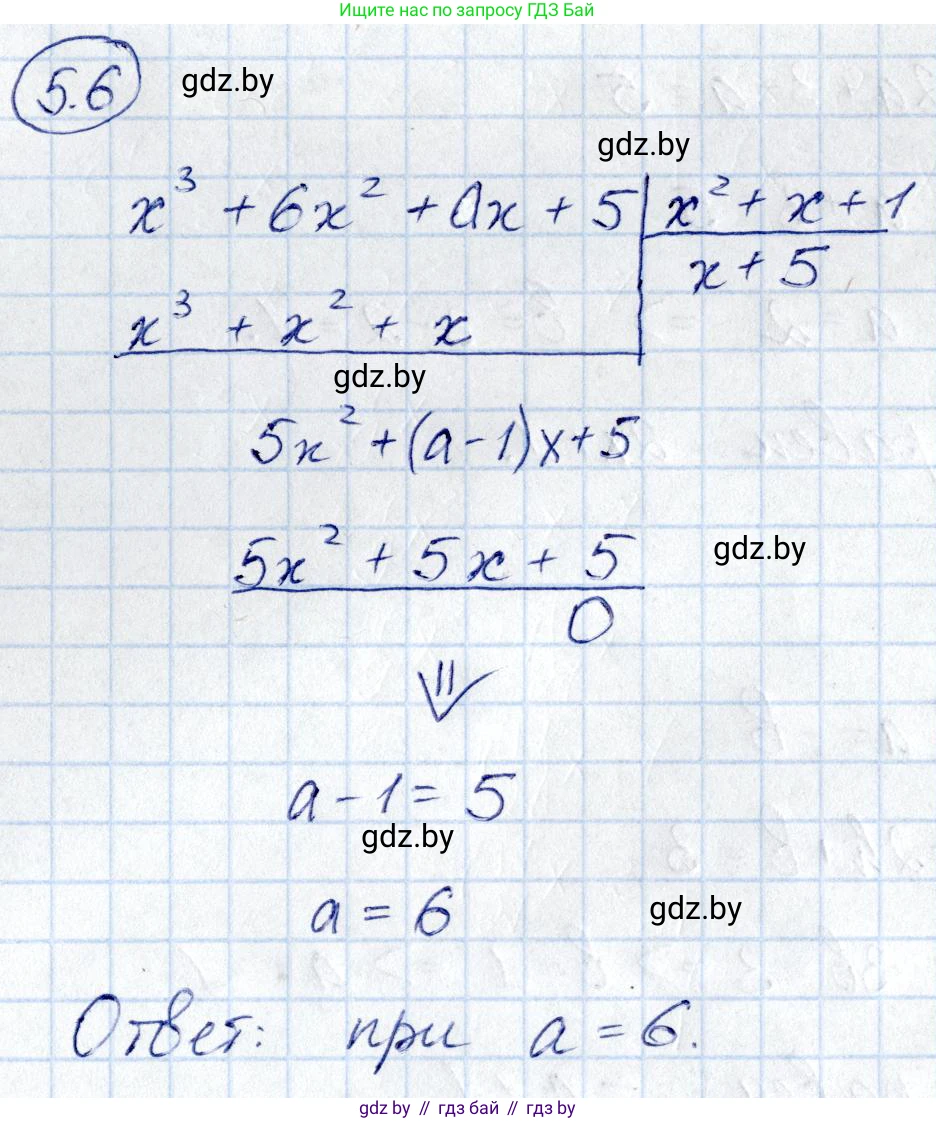 Ищите нас по запросу ГДЗ Бай
5.6 gdz.by
gdz.by
x³ + 6x² + ax + 5 | x² + x + 1
x + 5
x³ + x² + x
gdz.by
5x² + (a - 1)x + 5
5x² + 5x + 5
gdz.by
0
⇓
a - 1 = 5
gdz.by
a = 6
gdz.by
Ответ: при a = 6.
gdz by // гдз бай // гдз by